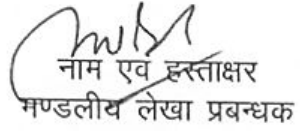 नाम एवं हस्ताक्षर
मण्डलीय लेखा प्रबन्धक